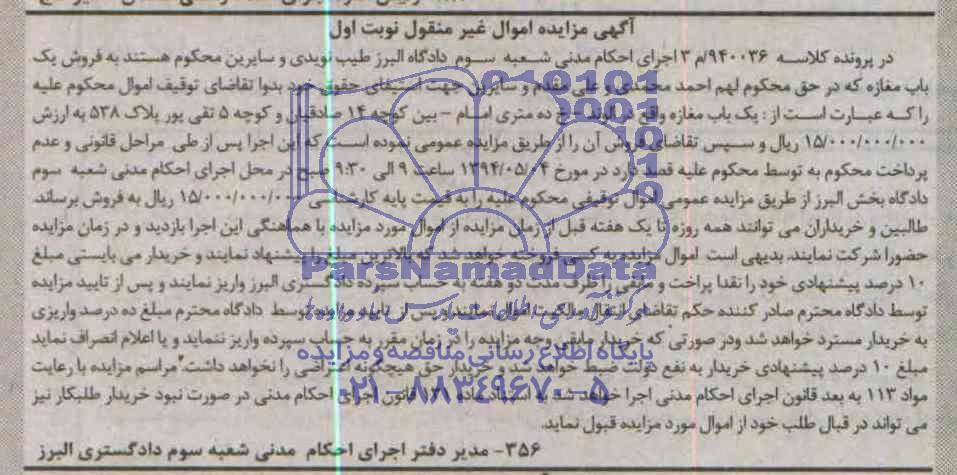 آگهی مزایده اموال غیر منقول نوبت اول
در پرونده کلاسه ۹۴۰۰۳۶/م ۳ اجرای احکام مدنی شعبه سوم دادگاه البرز طیب نویدی و سایرین محکوم هستند به فروش یک
باب مغازه که در حق محکوم لهم احمد محمدی و علی مقدم و سایرین جهت استیفای حقوق خود بدوا تقاضای توقیف اموال محکوم علیه
را که عبارت است از : یک باب مغازه واقع در الوند خ ده متری امام – بین کوچه ۱۴ صادقیان و کوچه ۵ تقی پور پلاک ۵۳۸ به ارزش
۱۵/۰۰۰/۰۰۰/۰۰۰ ریال و سپس تقاضای فروش آن را از طریق مزایده عمومی نموده است که این اجرا پس از طی مراحل قانونی و عدم
پرداخت محکوم به توسط محکوم علیه قصد دارد در مورخ ۱۳۹۴/۰۵/۰۴ ساعت ۹ الی ۹:۳۰ صبح در محل اجرای احکام مدنی شعبه سوم
دادگاه بخش البرز از طریق مزایده عمومی اموال توقیفی محکوم علیه را به قیمت پایه کارشناسی ۱۵/۰۰۰/۰۰۰/۰۰۰ ریال به فروش برساند.
طالبین و خریداران می توانند همه روزه تا یک هفته قبل از زمان مزایده از اموال مورد مزایده با هماهنگی این اجرا بازدید و در زمان مزایده
حضورا شرکت نمایند. بدیهی است اموال مزایده به کسی فروخته خواهد شد که بالاترین مبلغ را پیشنهاد نمایند و خریدار می بایستی مبلغ
۱۰ درصد پیشنهادی خود را نقدا پراخت و مابقی را ظرف مدت دو هفته به حساب سپرده دادگستری البرز واریز نمایند و پس از تایید مزایده
توسط دادگاه محترم صادر کننده حکم تقاضای انتقال مالکیت اموال نمایند و پس از تایید مزایده توسط دادگاه محترم مبلغ ده درصد واریزی
به خریدار مسترد خواهد شد ودر صورتی که خریدار مابقی وجه مزایده را در زمان مقرر به حساب سپرده واریز ننماید و یا اعلام انصراف نماید
مبلغ ۱۰ درصد پیشنهادی خریدار به نفع دولت ضبط خواهد شد و خریدار حق هیچگونه اعتراضی را نخواهد داشت. مراسم مزایده با رعایت
مواد ۱۱۳ به بعد قانون اجرای احکام مدنی اجرا خواهد شد به استناد ماده ۱۳۱ قانون اجرای احکام مدنی در صورت نبود خریدار طلبکار نیز
می تواند در قبال طلب خود از اموال مورد مزایده قبول نماید.
۳۵۶- مدیر دفتر اجرای احکام مدنی شعبه سوم دادگستری البرز
ParsNamadData
پایگاه اطلاع رسانی مناقصه و مزایده
۰۲۱-۸۸۳۴۹۶۷۰-۵